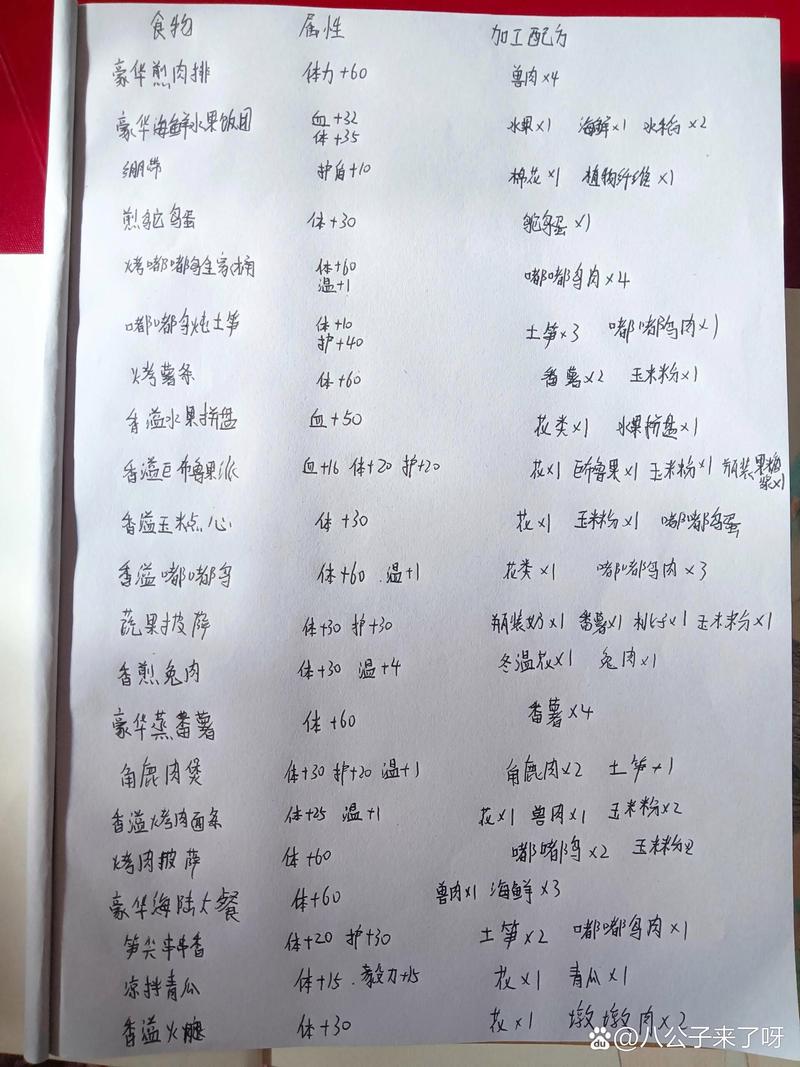 食物 属性 加工配方
豪华煎肉排 体力+60 兽肉×4
豪华海鲜水果饭团 血+32 体+35 水果×1 海鲜×1 水稻×2
绷带 护盾+10 棉花×1 植物纤维×1
煎鸵鸟蛋 体+30 鸵鸟蛋×1
烤嘟嘟鸟全家桶 体+60 温+1 嘟嘟鸟肉×4
嘟嘟鸟炖土笋 体+10 护+40 土笋×3 嘟嘟鸟肉×1
烤薯条 体+60 番薯×2 玉米粉×1
香溢水果拼盘 血+50 花类×1 水果拼盘×1
香溢巨布鲁果派 血+16 体+20 护+20 花×1 巨布鲁果×1 玉米粉×1 瓶装果糖浆×1
香溢玉米点心 体+30 花×1 玉米粉×1 嘟嘟鸟蛋
香溢嘟嘟鸟 体+60.温+1 花类×1 嘟嘟鸟肉×3
蔬果披萨 体+30 护+30 瓶装奶×1 番薯×1 利子×1 玉米粉×1
香煎兔肉 体+30 温+4 冬温花×1 兔肉×1
豪华蒸番薯 体+60 番薯×4
角鹿肉煲 体+30 护+20 温+1 角鹿肉×2 土笋×1
香溢烤肉面条 体+25 温+1 花×1 兽肉×1 玉米粉×2
烤肉披萨 体+60 嘟嘟鸟×2 玉米粉2
豪华海陆大餐 体+60 兽肉×1 海鲜×3
笋尖串串香 体+20 护+30 土笋×2 嘟嘟鸟肉×1
凉拌青瓜 体+15.毅力+15 花×1 青瓜×1
香溢火腿 体+30 花×1 墩墩肉×2
Baidu @八公子来了呀